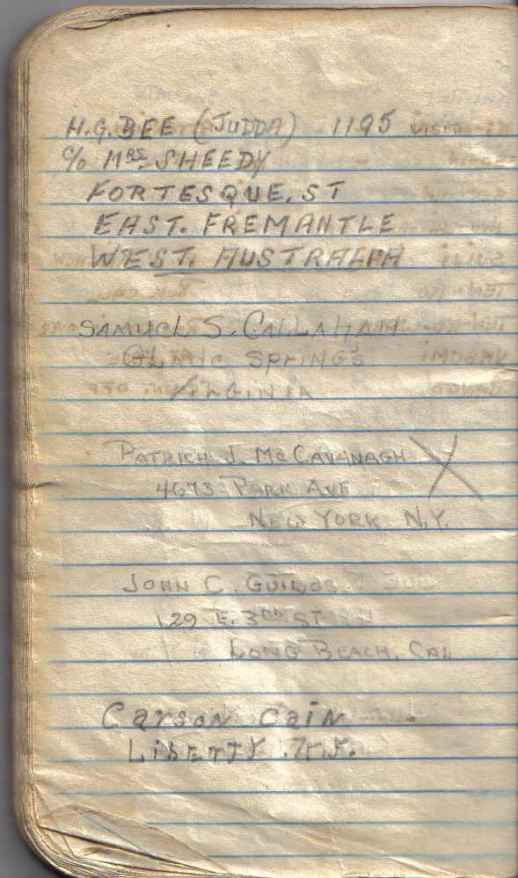 H.G. BEE (JUDDA) 1195
C/o MRS. SHEEDY
FORTESQUE. ST
EAST. FREMANTLE
WEST. AUSTRALIA
SAMUEL S. CALLAHAN
SPRINGS
VIRGINIA
PATRICK J. McCAVANAGH X
4673 PARK AVE
NEW YORK N.Y.
JOHN C.
129 E. 3RD ST
LONG BEACH, CAL
Carson Cain
LIBERTY